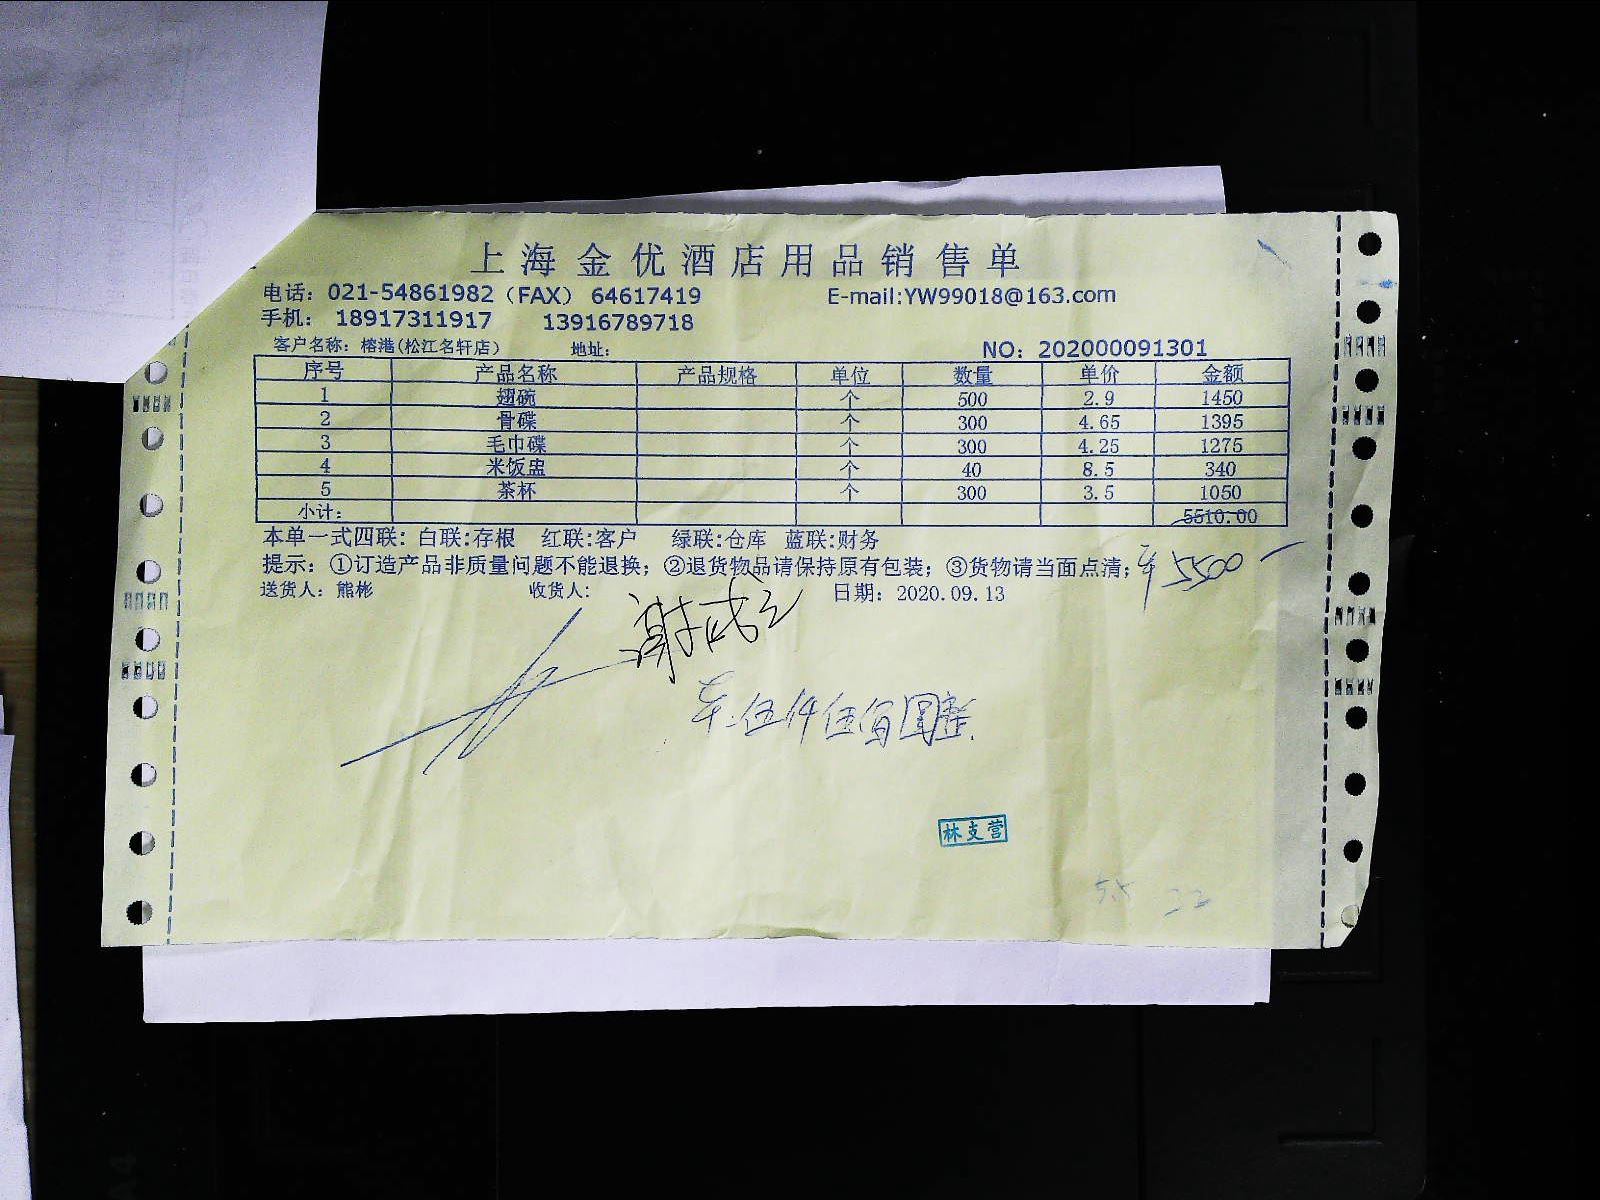 上海金优酒店用品销售单
电话：021-54861982（FAX） 64617419 E-mail:YW99018@163.com
手机： 18917311917 13916789718
客户名称：榕港(松江名轩店） 地址： NO：202000091301
序号 产品名称 产品规格 单位 数量 单价 金额
1 翅碗 个 500 2.9 1450
2 骨碟 个 300 4.65 1395
3 毛巾碟 个 300 4.25 1275
4 米饭盅 个 40 8.5 340
5 茶杯 个 300 3.5 1050
小计： 5510.00
本单一式四联：白联:存根 红联:客户 绿联:仓库 蓝联:财务
提示：①订造产品非质量问题不能退换；②退货物品请保持原有包装；③货物请当面点清；
¥5500
送货人：熊彬 收货人： 日期：2020.09.13
伍仟伍佰圆整
林支营